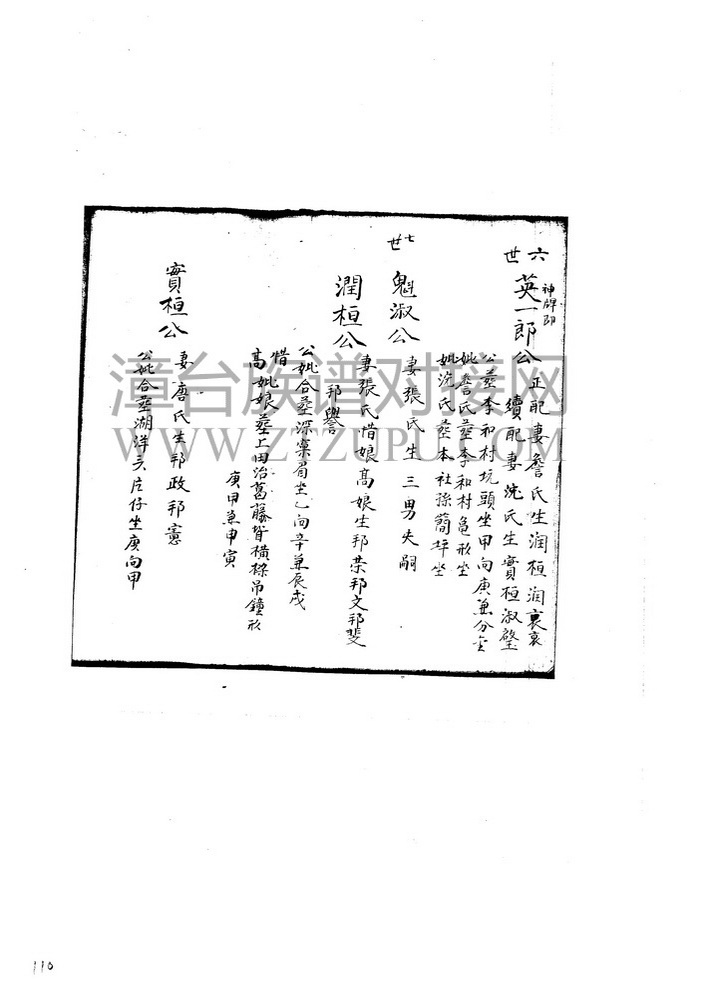 六世
神牌即
英一郎公
正配妻詹氏生润桓润裏
續配妻沈氏生實桓淑啓
公葬李和村坑頭坐甲向庚兼分金
妣詹氏葬李和村龟形坐
妣沈氏葬本社孫簡坪坐
七世
魁淑公
妻張氏生三男失嗣
潤桓公
妻張氏惜娘高娘生邦荣邦文邦斐
邦譽
公妣合葬深窠眉坐乙向辛兼辰戌
惜
高妣娘葬上田治葛藤背橫樑吊鐘形
庚甲兼申寅
實桓公
妻唐氏生邦政邦憲
公妣合葬湖洋头片仔坐庚向甲
漳台族谱对接网
WWW.ZTZUPU.COM
110